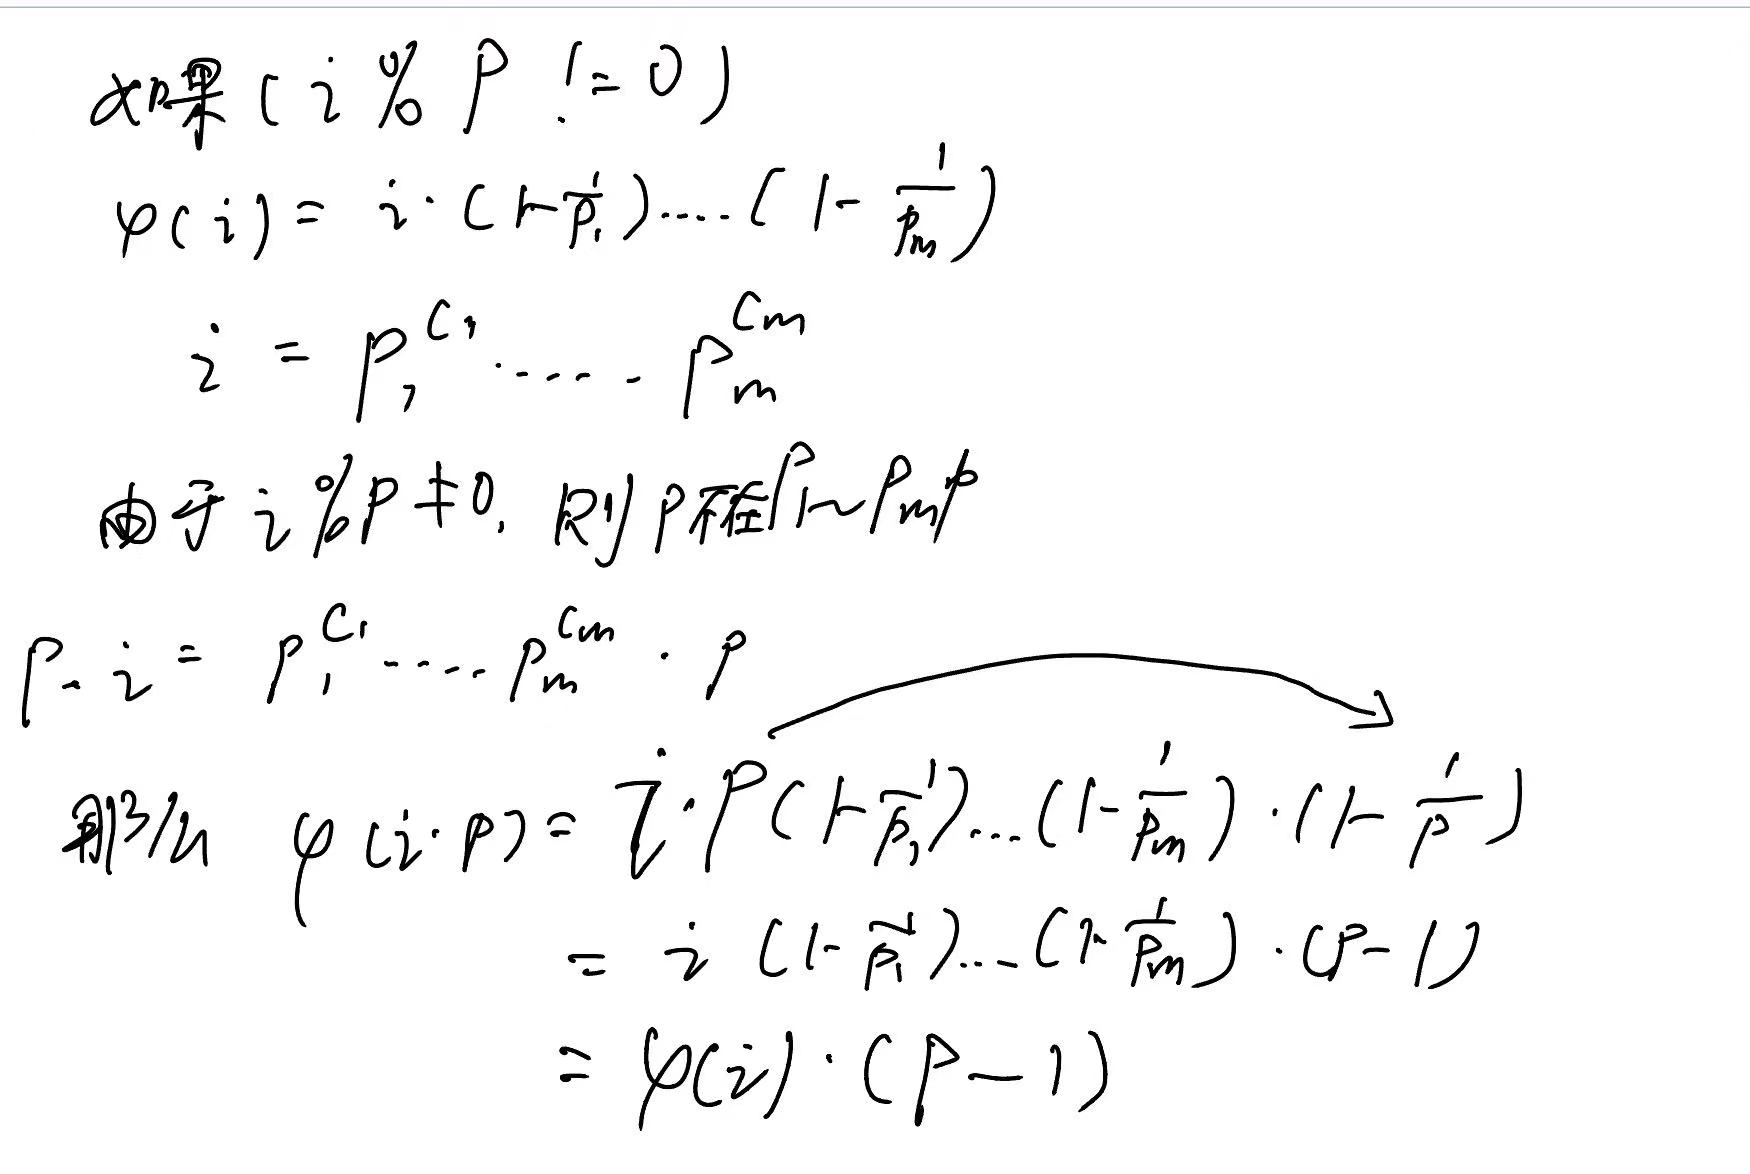 如果(i % P != 0)
φ(i) = i·(1-1/p₁)....(1-1/pₘ)
i = p₁^C₁ ..... pₘ^Cₘ
由于 i%p≠0, 则p不在p₁~pₘ中
p·i = p₁^C₁ .... pₘ^Cₘ · p
那么 φ(i·p) = i·p(1-1/p₁)...(1-1/pₘ)·(1-1/p)
= i (1-1/p₁)...(1-1/pₘ)·(p-1)
= φ(i)·(p-1)